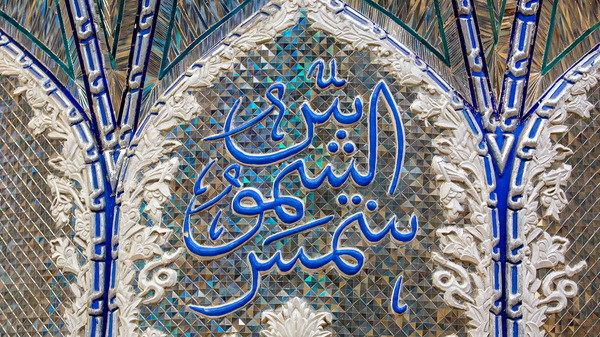 شمس الشموس